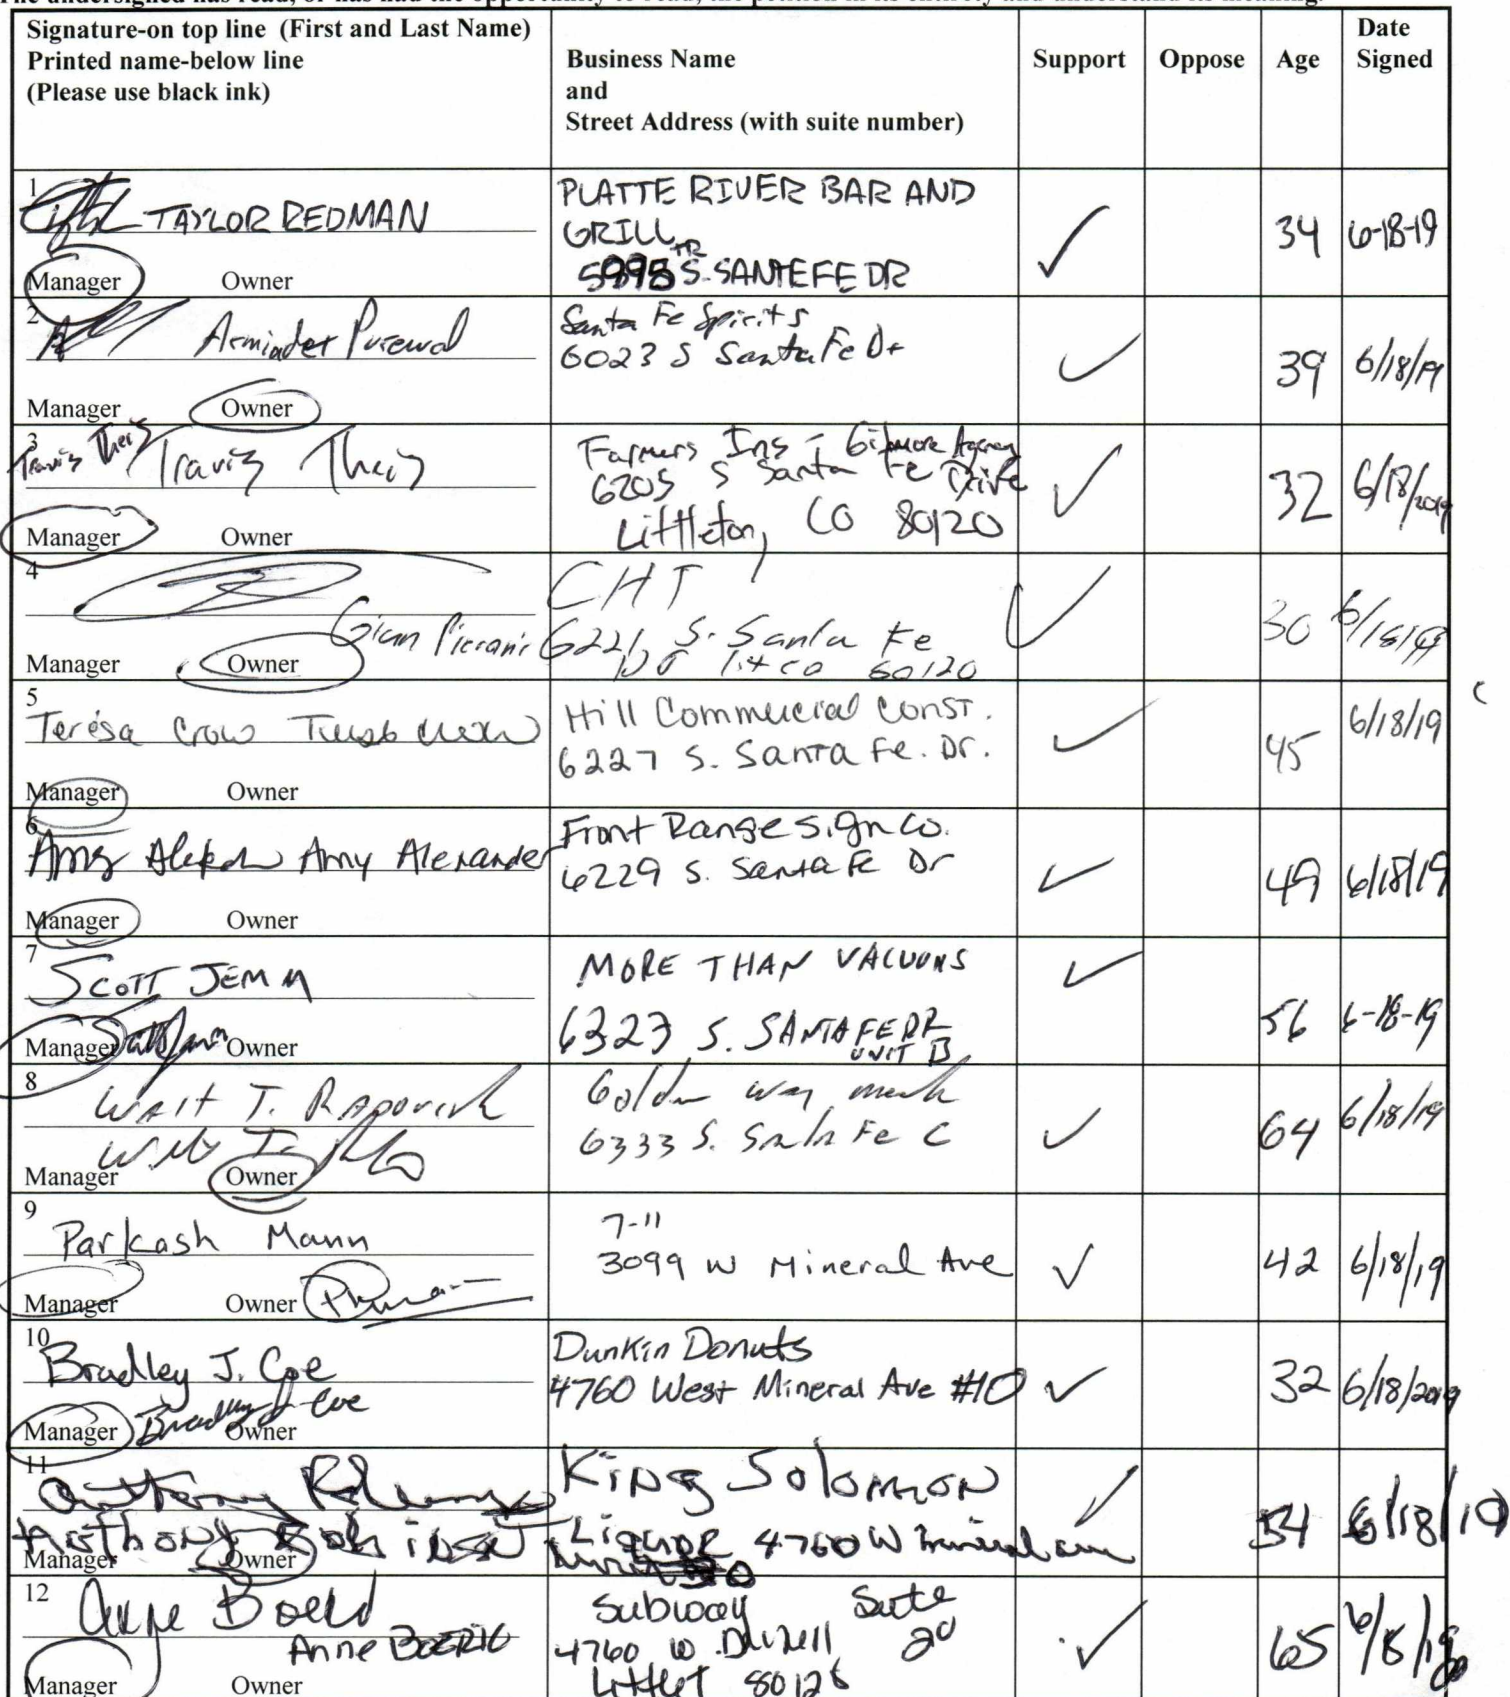 Signature-on top line (First and Last Name)
Printed name-below line
(Please use black ink)
Business Name
and
Street Address (with suite number)
Support
Oppose
Age
Date
Signed
1
TAYLOR REDMAN
Manager Owner
PLATTE RIVER BAR AND
GRILL
TR
5995 S. SANTEFE DR
34
6-18-19
2
Arminder Purewal
Manager Owner
Santa Fe Spirits
6023 S Santa Fe Dr
39
6/18/19
3
Travis Theis Travis Theis
Manager Owner
Farmers Ins - Gilmore Agency
6205 S Santa Fe Drive
Littleton, CO 80120
32
6/18/2019
4
Gian
Manager Owner
CHT
6221 S. Santa Fe
80120
30
6/18/19
5
Teresa Crow
Manager Owner
Hill Commercial Const.
6227 S. Santa Fe. Dr.
45
6/18/19
6
Amy Amy Alexander
Manager Owner
Front Range Sign Co.
6229 S. Santa Fe Dr
49
6/18/19
7
SCOTT JEMM
Manager Owner
MORE THAN VACUUMS
6323 S. SANTA FE DR
UNIT B
56
6-18-19
8
Walt T. Radovich
Manager Owner
Golden way
6333 S. Santa Fe C
64
6/18/19
9
Parkash Mann
Manager Owner
7-11
3099 W Mineral Ave
42
6/18/19
10
Bradley J. Coe
Bradley J Coe
Manager Owner
Dunkin Donuts
4760 West Mineral Ave #10
32
6/18/2019
11
Anthony
Anthony Robinson
Manager Owner
King Solomon
Liquor 4760 W Mineral ave
54
6/18/19
12
Anne
Anne
Manager Owner
Subway Suite
4760 W. 20
80128
65